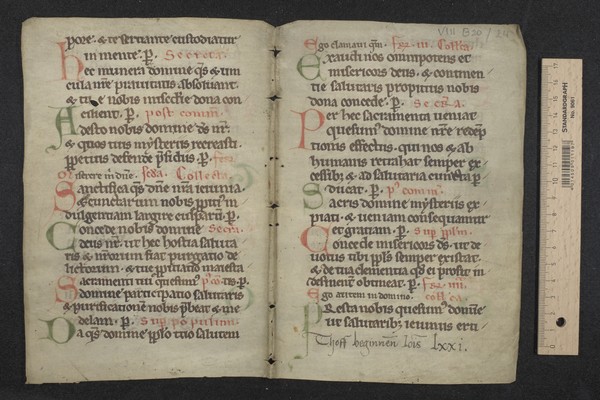 pore. & te servante custodiatur
in mente. p. Secreta.
Hec munera domine qs & vin
cula nre pravitatis absolvant.
& tue nobis misericordie dona con
cilient. p. post comun.
Adesto nobis domine ds nr.
& quos tuis mysteriis recreasti.
perpetuis defende presidiis. p.
Collecta.
Sanctifica qs dne nra ieiunia.
& cunctarum nobis
indulgentiam largire culparum. p.
Concede nobis domine Secre.
deus nr. ut hec hostia saluta
ris & nrorum fiat purgatio de
lictorum. & tue
Sacramenti tui
domine participatio salutaris
& purificationem nobis pbeat & me
delam. p. Sup populum.
Da qs domine pplo tuo salutem
Ego clamavi qm. fer. iii. Collecta.
Exaudi nos omnipotens et
misericors deus. & continen
tie salutaris propitius nobis
dona concede. p. Secra.
Per hec sacramenta veniat
quesumus domine nre redep
tionis effectus. qui nos & ab
humanis retrahat semper ex
cessib; & ad salutaria
ducat. p. comun.
Sacris domine mysteriis ex
piati. & veniam consequamur
et gratiam. p. Sup pplm.
Concede misericors ds. ut de
votus tibi ppls semper existat.
& de tua clementia qd ei prosit in
desinent obtineat. p. fer. iiii.
Ego autem in domino. collecta.
Presta nobis quesum domine
ut salutarib; ieiuniis eru
Thoff beginnen Lxxi.
STANDARDGRAPH